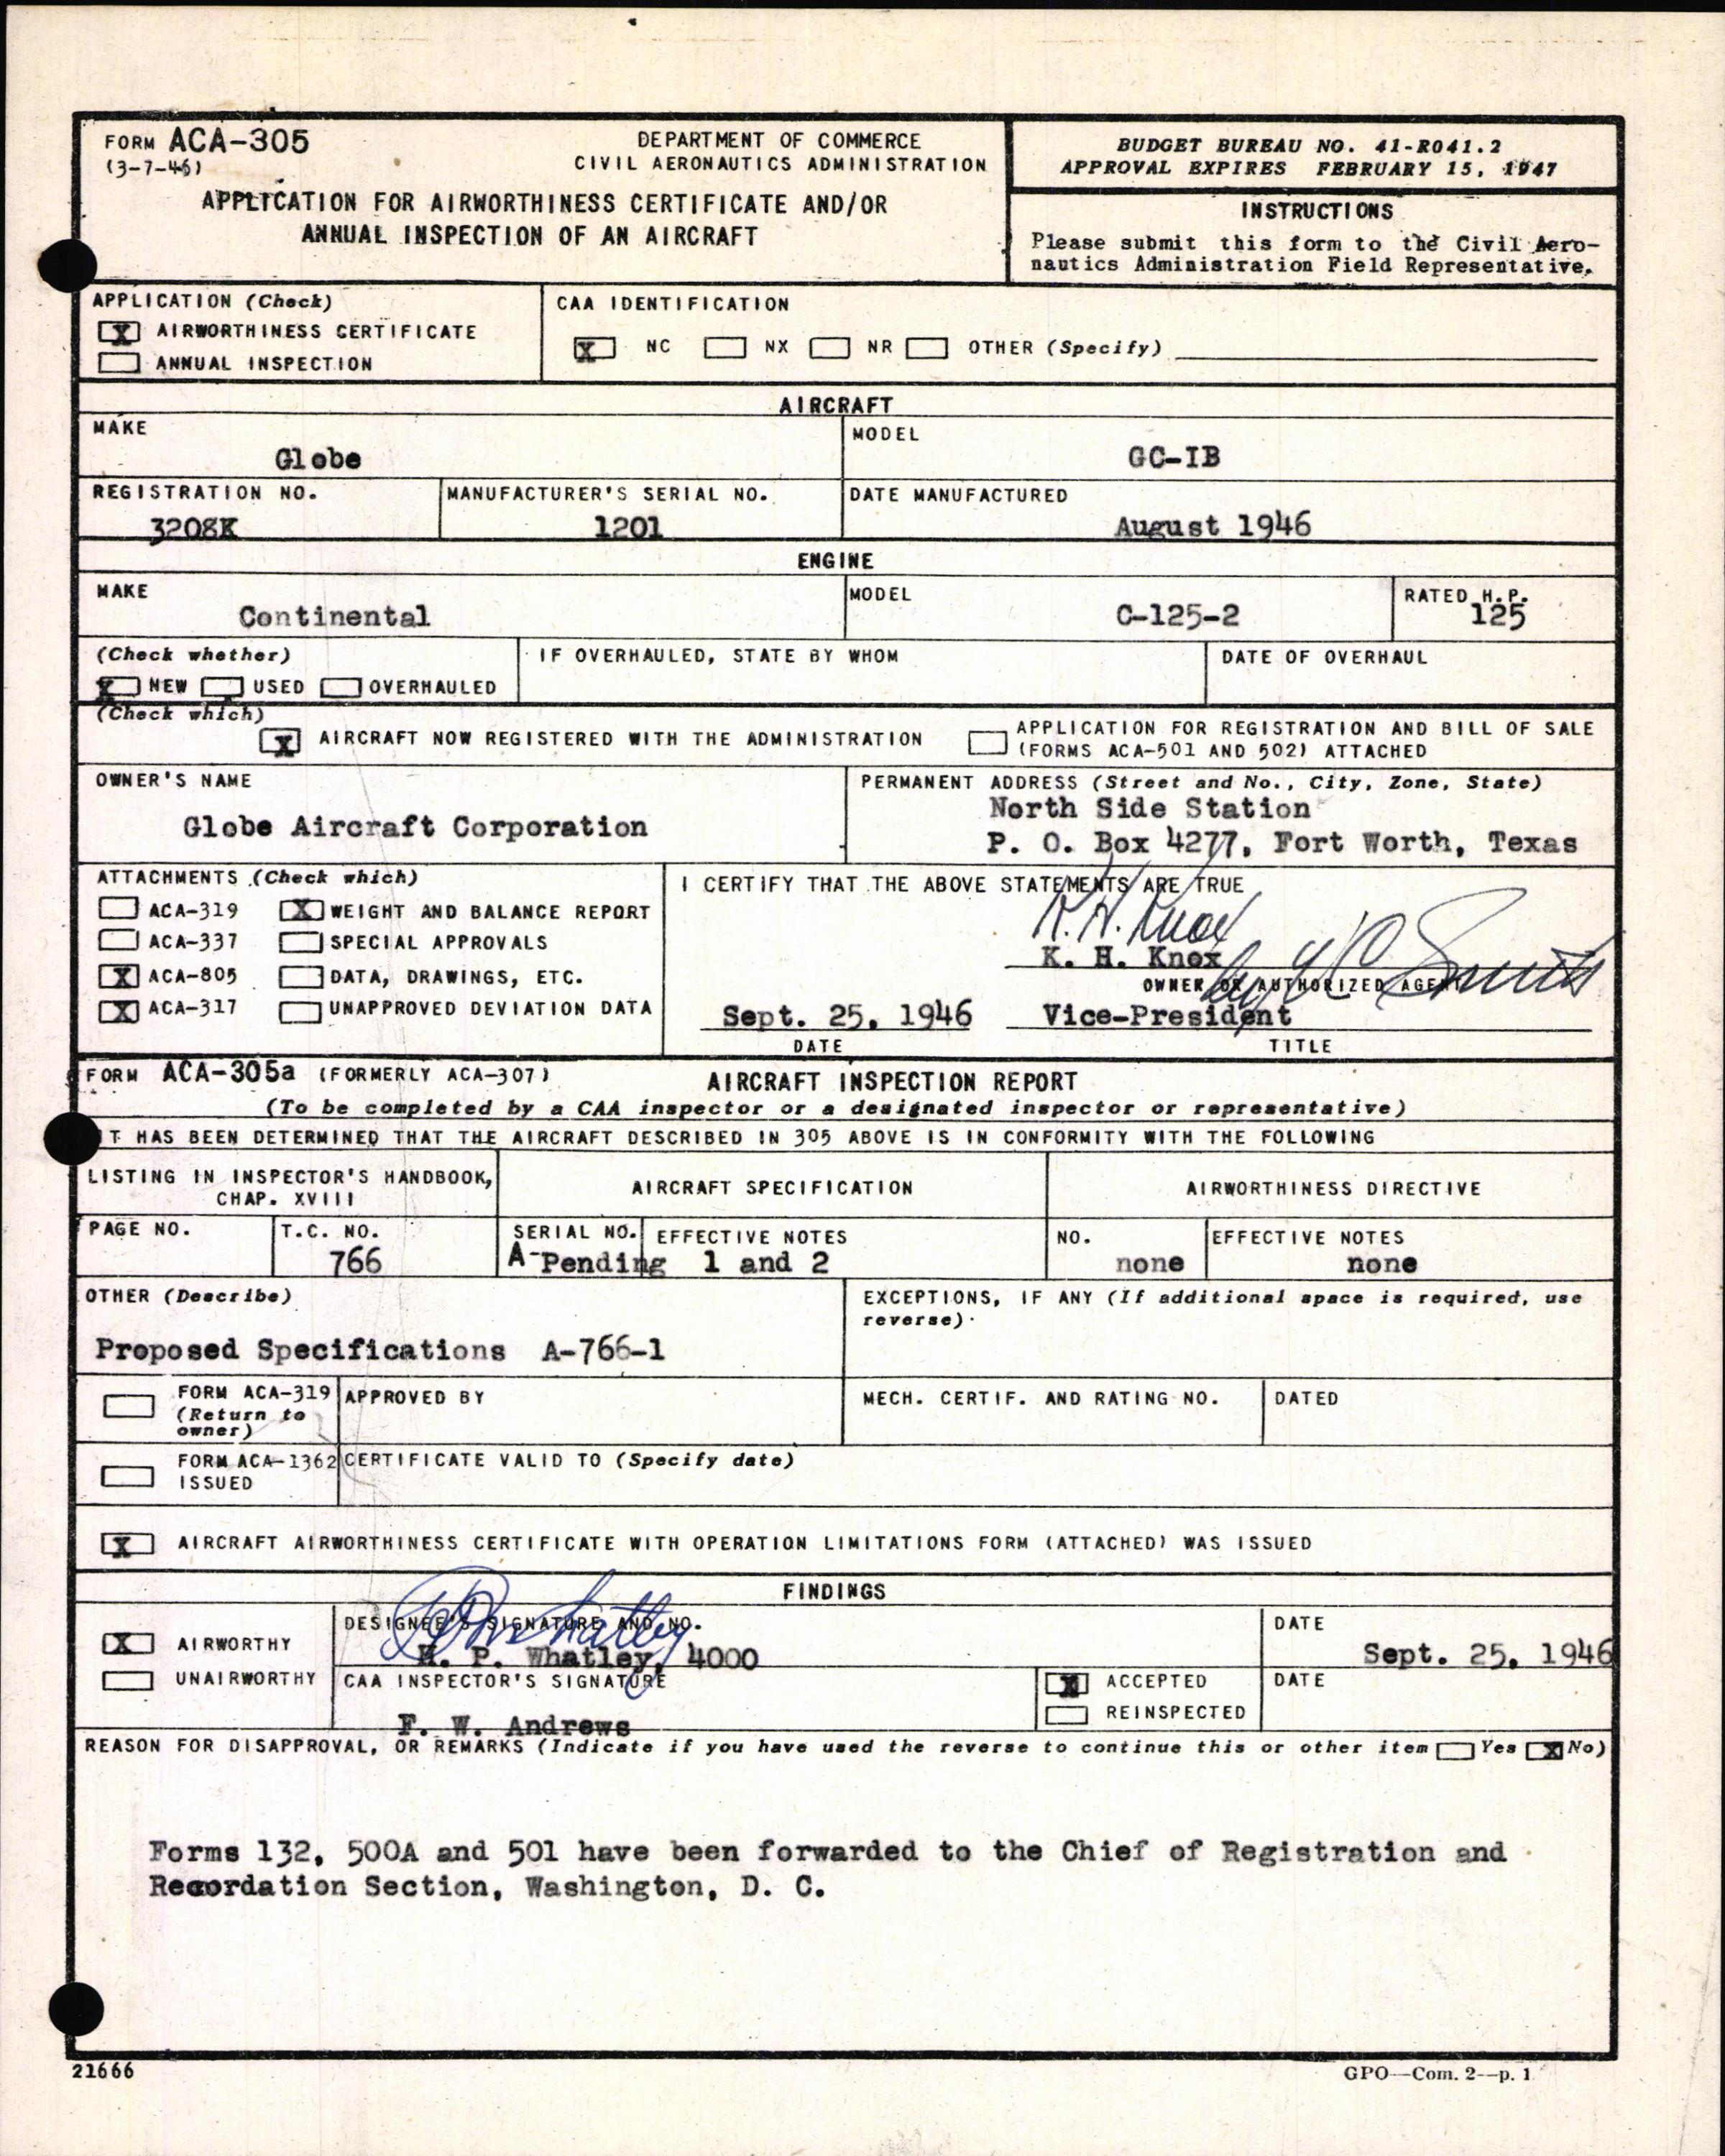 FORM ACA-305
(3-7-46)
DEPARTMENT OF COMMERCE
CIVIL AERONAUTICS ADMINISTRATION
APPLICATION FOR AIRWORTHINESS CERTIFICATE AND/OR
ANNUAL INSPECTION OF AN AIRCRAFT
BUDGET BUREAU NO. 41-R041.2
APPROVAL EXPIRES FEBRUARY 15, 1947
INSTRUCTIONS
Please submit this form to the Civil Aero-
nautics Administration Field Representative.
APPLICATION (Check)
X AIRWORTHINESS CERTIFICATE
ANNUAL INSPECTION
CAA IDENTIFICATION
X NC NX NR OTHER (Specify)
AIRCRAFT
MAKE
Globe
MODEL
GC-IB
REGISTRATION NO.
3208K
MANUFACTURER'S SERIAL NO.
1201
DATE MANUFACTURED
August 1946
ENGINE
MAKE
Continental
MODEL
C-125-2
RATED H.P.
125
(Check whether)
X NEW USED OVERHAULED
IF OVERHAULED, STATE BY WHOM
DATE OF OVERHAUL
(Check which)
X AIRCRAFT NOW REGISTERED WITH THE ADMINISTRATION
APPLICATION FOR REGISTRATION AND BILL OF SALE
(FORMS ACA-501 AND 502) ATTACHED
OWNER'S NAME
Globe Aircraft Corporation
PERMANENT ADDRESS (Street and No., City, Zone, State)
North Side Station
P. O. Box 4277, Fort Worth, Texas
ATTACHMENTS (Check which)
ACA-319 X WEIGHT AND BALANCE REPORT
ACA-337 SPECIAL APPROVALS
X ACA-805 DATA, DRAWINGS, ETC.
X ACA-317 UNAPPROVED DEVIATION DATA
I CERTIFY THAT THE ABOVE STATEMENTS ARE TRUE
K. H. Knox
K. H. Knox
by Smith
OWNER OR AUTHORIZED AGENT
Sept. 25, 1946 Vice-President
DATE TITLE
FORM ACA-305a (FORMERLY ACA-307)
AIRCRAFT INSPECTION REPORT
(To be completed by a CAA inspector or a designated inspector or representative)
IT HAS BEEN DETERMINED THAT THE AIRCRAFT DESCRIBED IN 305 ABOVE IS IN CONFORMITY WITH THE FOLLOWING
LISTING IN INSPECTOR'S HANDBOOK,
CHAP. XVIII
AIRCRAFT SPECIFICATION
AIRWORTHINESS DIRECTIVE
PAGE NO.
T.C. NO.
766
SERIAL NO.
A-Pending
EFFECTIVE NOTES
1 and 2
NO.
none
EFFECTIVE NOTES
none
OTHER (Describe)
Proposed Specifications A-766-1
EXCEPTIONS, IF ANY (If additional space is required, use
reverse).
FORM ACA-319
(Return to
owner)
APPROVED BY
MECH. CERTIF. AND RATING NO.
DATED
FORM ACA-1362
ISSUED
CERTIFICATE VALID TO (Specify date)
X AIRCRAFT AIRWORTHINESS CERTIFICATE WITH OPERATION LIMITATIONS FORM (ATTACHED) WAS ISSUED
FINDINGS
X AIRWORTHY
UNAIRWORTHY
DESIGNEE'S SIGNATURE AND NO.
H. P. Whatley, 4000
DATE
Sept. 25, 1946
CAA INSPECTOR'S SIGNATURE
F. W. Andrews
X ACCEPTED
REINSPECTED
DATE
REASON FOR DISAPPROVAL, OR REMARKS (Indicate if you have used the reverse to continue this or other item Yes X No)
Forms 132, 500A and 501 have been forwarded to the Chief of Registration and
Recordation Section, Washington, D. C.
21666
GPO—Com. 2—p. 1